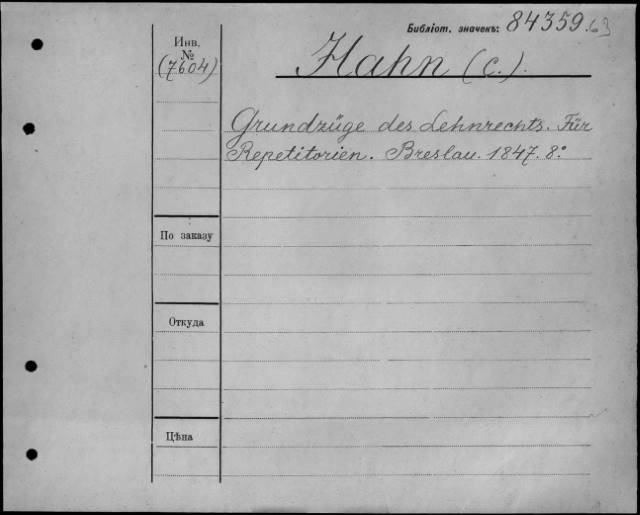 Бібліот. значекъ: 84359.63
Инв.
№
(7604)
Hahn (C.).
Grundzüge des Lehnrechts. Für
Repetitorien. Breslau. 1847. 8.°
По заказу
Откуда
Цѣна